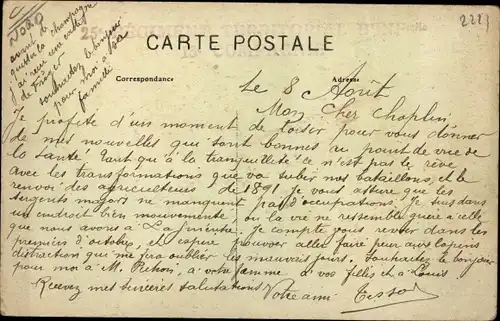 2221
CARTE POSTALE
Correspondance
Adresse
NORD
avant de
quitter le champagne
j'ai reçu une carte
de
souhaitez le bonjour
pour moi à sa
famille
Le 8 Août
Mon Cher Choplin,
Je profite d'un moment de loisir pour vous donner
de mes nouvelles qui sont bonnes au point de vue de
la santé tant qu'à la tranquillité ce n'est pas le rêve
avec les transformations que va subir nos bataillons, et le
renvoi des agriculteurs de 1891 je vous assure que les
sergents majors ne manquent pas d'occupations, je suis dans
un endroit bien mouvementé, ou la vie ne ressemble guère à celle
que nous avons à Je compte vous revoir dans les
premiers d'octobre, et espère pouvoir aller faire
distraction qui me fera oublier les mauvais jours. Souhaitez le bonjour
pour moi à M. à votre femme à vos filles et à Louis
Recevez mes sincères salutations Votre ami Tesso